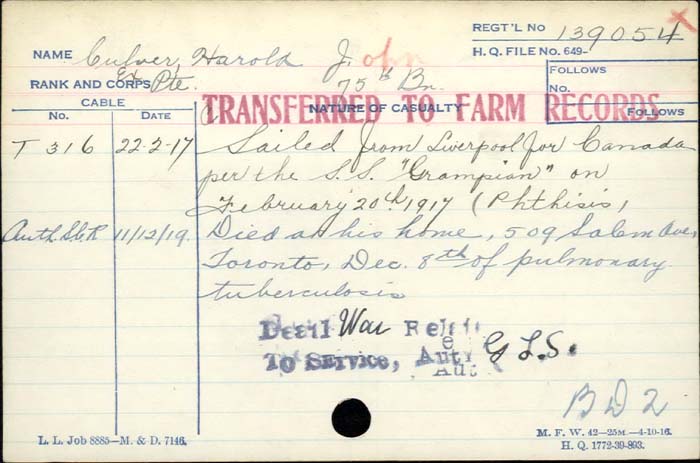 REGT'L NO 139054
NAME Culver, Harold John
H. Q. FILE NO. 649-
RANK AND CORPS Ex Pte. 75th Bn.
FOLLOWS
No.
FOLLOWS
CABLE
No. DATE
NATURE OF CASUALTY
TRANSFERRED TO FARM RECORDS
T 316 22-2-17 Sailed from Liverpool for Canada
per the S.S. "Grampian" on
February 20th 1917 (Phthisis,
Auth. D.G.R 11/12/19. Died at his home, 509 Salem Ave,
Toronto, Dec. 8th of pulmonary
tuberculosis
Death War Rel
To Service, Aut G.L.S.
Aut
B D 2
L. L. Job 8885—M. & D. 7146.
M. F. W. 42—25M.—4-10-16.
H. Q. 1772-39-893.